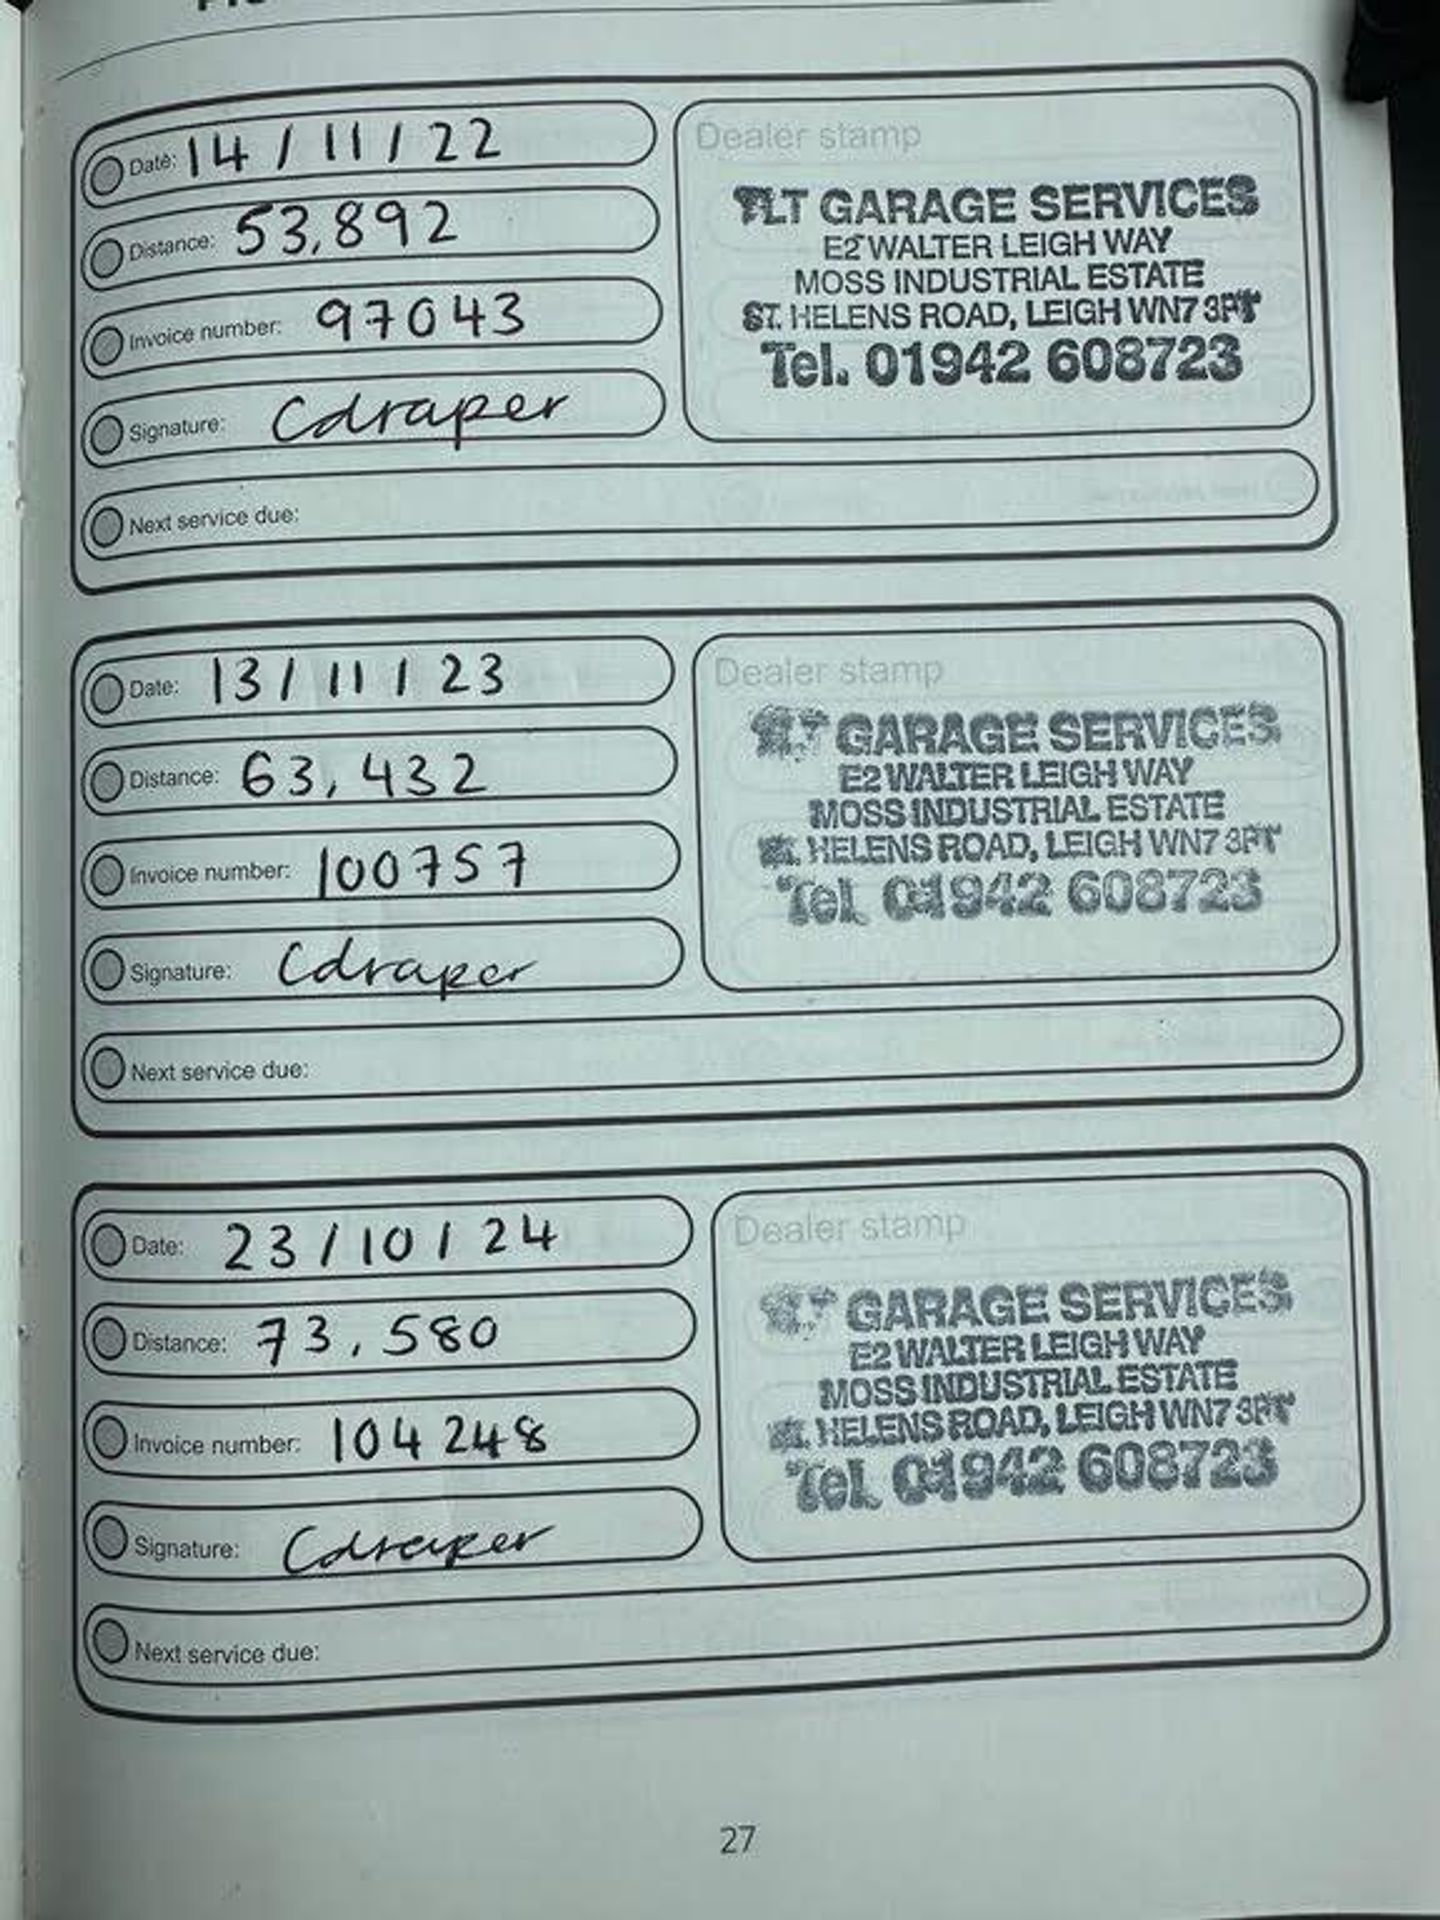 Date: 14/11/22
Distance: 53,892
Invoice number: 97043
Signature: Cdraper
Next service due:
Dealer stamp
TLT GARAGE SERVICES
E2 WALTER LEIGH WAY
MOSS INDUSTRIAL ESTATE
ST. HELENS ROAD, LEIGH WN7 3PT
Tel. 01942 608723
Date: 13/11/23
Distance: 63,432
Invoice number: 100757
Signature: Cdraper
Next service due:
Dealer stamp
GARAGE SERVICES
E2 WALTER LEIGH WAY
MOSS INDUSTRIAL ESTATE
HELENS ROAD, LEIGH WN7 3PT
Tel. 01942 608723
Date: 23/10/24
Distance: 73,580
Invoice number: 104248
Signature: Cdraper
Next service due:
Dealer stamp
GARAGE SERVICES
E2 WALTER LEIGH WAY
MOSS INDUSTRIAL ESTATE
HELENS ROAD, LEIGH WN7 3PT
Tel. 01942 608723
27